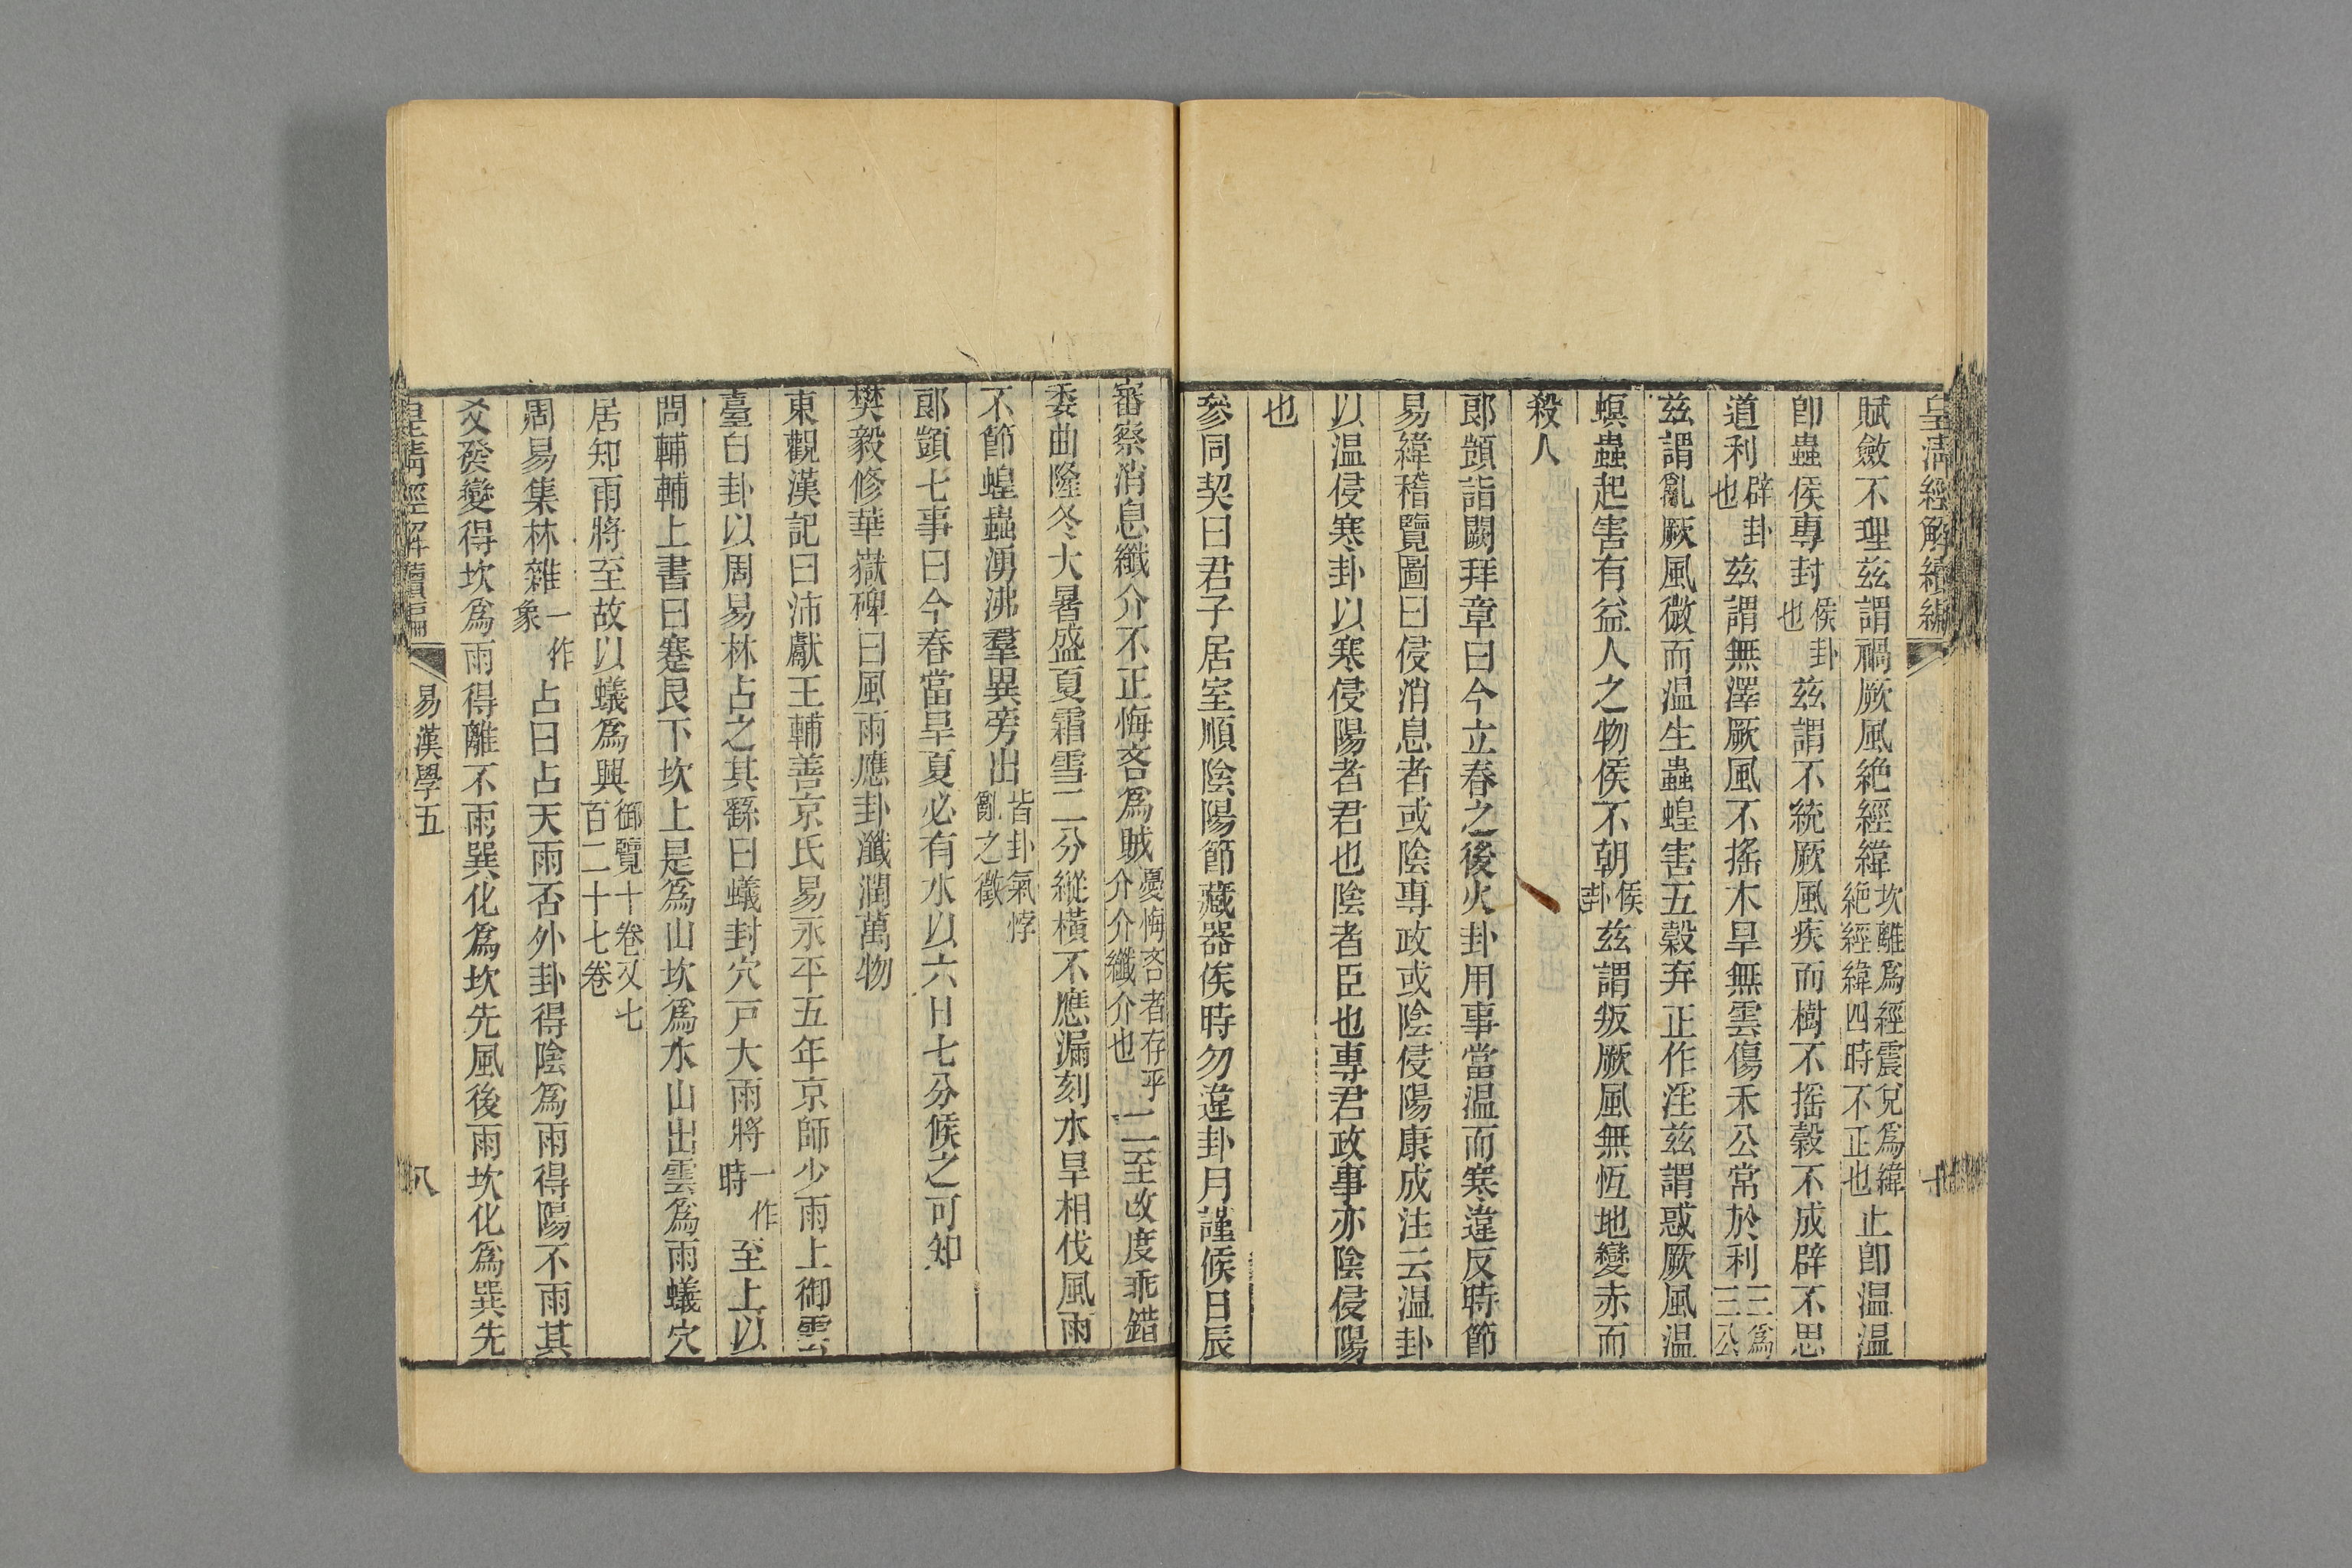 皇清經解續編
賦斂不理茲謂禍厥風絶經緯坎離爲經震兌爲緯絶經緯四時不正也止卽温温
卽蟲侯專封侯卦也茲謂不統厥風疾而樹不搖穀不成辟不思
道利辟卦也茲謂無澤厥風不搖木旱無雲傷禾公常於利三爲三公
茲謂亂厥風微而温生蟲蝗害五穀弃正作淫茲謂惑厥風温
螟蟲起害有益人之物侯不朝侯卦茲謂叛厥風無恆地變赤而
殺人
郎顗詣闕拜章曰今立春之後火卦用事當温而寒違反時節
易緯稽覽圖曰侵消息者或陰專政或陰侵陽康成注云温卦
以温侵寒卦以寒侵陽者君也陰者臣也專君政事亦陰侵陽
也
參同契曰君子居室順陰陽節藏器俟時勿違卦月謹候日辰
審察消息纖介不正悔吝爲賊憂悔吝者存乎介介纖介也二至改度乖錯
委曲隆冬大暑盛夏霜雪二分縱橫不應漏刻水旱相伐風雨
不節蝗蟲湧沸羣異旁出皆卦氣悖亂之徵
郎顗七事曰今春當旱夏必有水以六日七分候之可知
樊毅修華嶽碑曰風雨應卦瀸潤萬物
東觀漢記曰沛獻王輔善京氏易永平五年京師少雨上御雲
臺自卦以周易林占之其繇曰蟻封穴戸大雨將一作時至上以
問輔輔上書曰蹇艮下坎上是爲山坎爲水山出雲爲雨蟻穴
居知雨將至故以蟻爲興御覽十卷又七百二十七卷
周易集林雜一作象占曰占天雨否外卦得陰爲雨得陽不雨其
爻發變得坎爲雨得離不雨巽化爲坎先風後雨坎化爲巽先
皇清經解續編 易漢學五 八